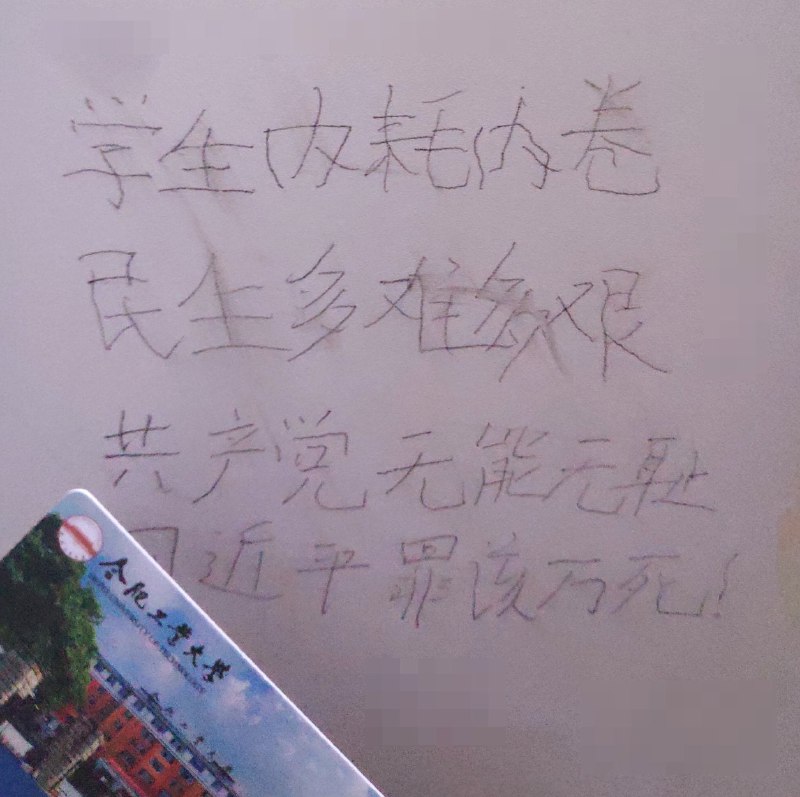 学生内耗内卷
民生多难多艰
共产党无能无耻
习近平罪该万死!
合肥工业大学